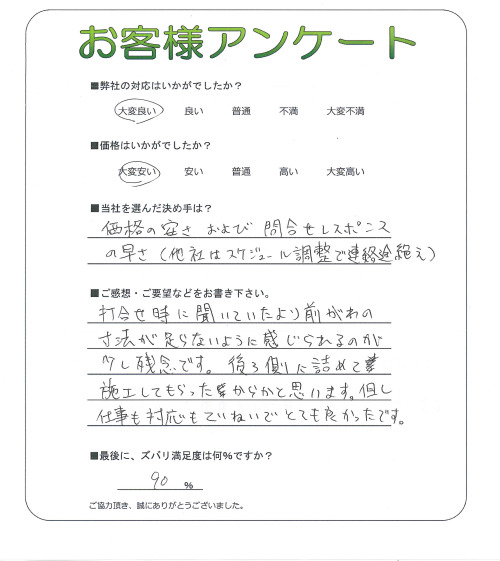 お客様アンケート
■弊社の対応はいかがでしたか？
大変良い 良い 普通 不満 大変不満
■価格はいかがでしたか？
大変安い 安い 普通 高い 大変高い
■当社を選んだ決め手は？
価格の安さ および 問合せレスポンス
の早さ（他社はスケジュール調整で連絡途絶え）
■ご感想・ご要望などをお書き下さい。
打合せ時に聞いていたより前がわの
寸法が足らないように感じられるのが
少し残念です。後ろ側に詰めて
施工してもらったからかと思います。但し
仕事も対応もていねいでとても良かったです。
■最後に、ズバリ満足度は何％ですか？
90 ％
ご協力頂き、誠にありがとうございました。